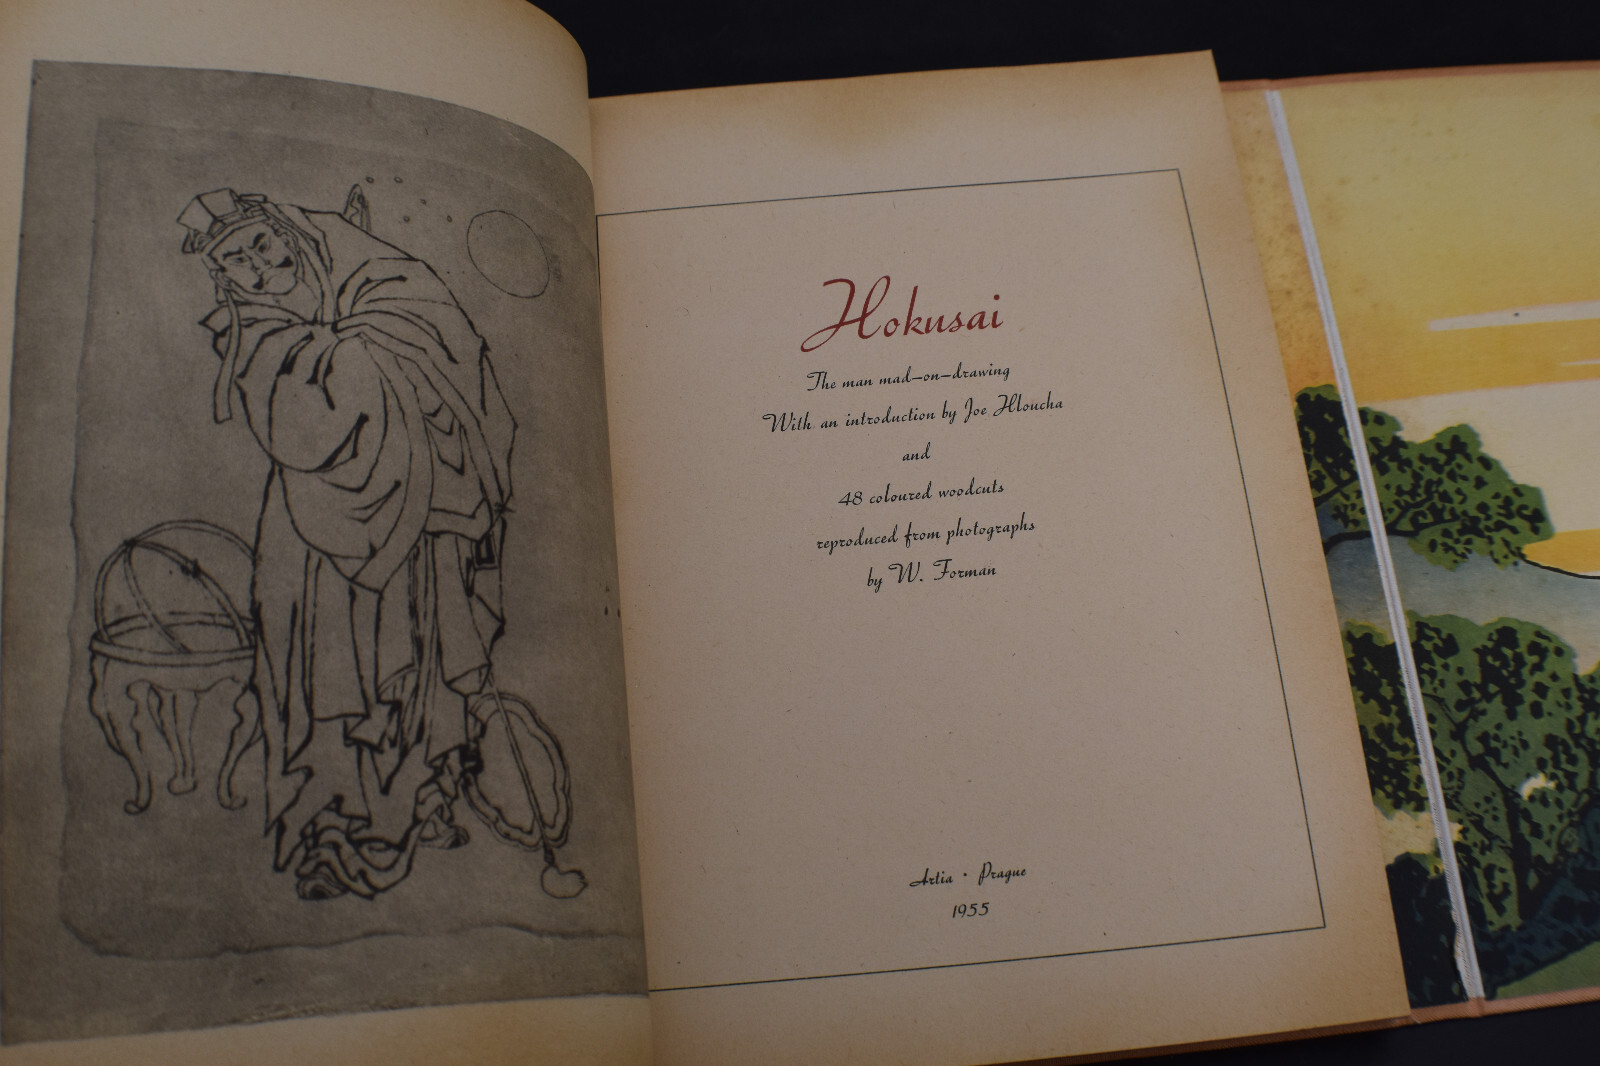 Hokusai
The man mad-on-drawing
With an introduction by Joe Hloucha
and
48 coloured woodcuts
reproduced from photographs
by W. Forman
Artia · Prague
1955